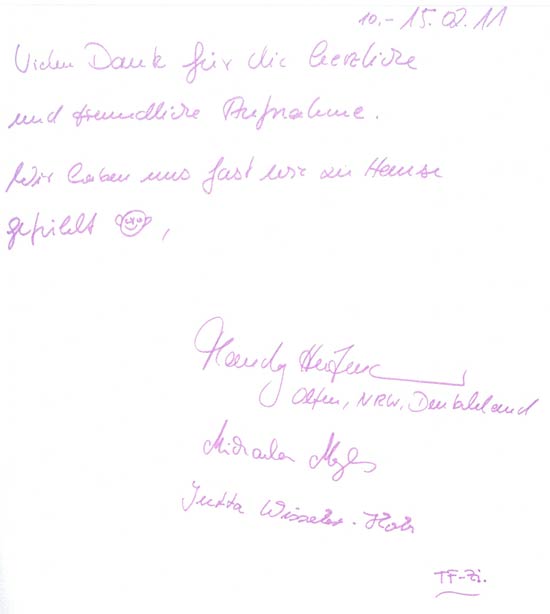 10.- 15.02.11
Vielen Dank für die herzliche
und freundliche Aufnahme.
Wir haben uns fast wie zu Hause
gefühlt ,
Olfen, NRW, Deutschland
Michaela
Jutta
TF-Zi.